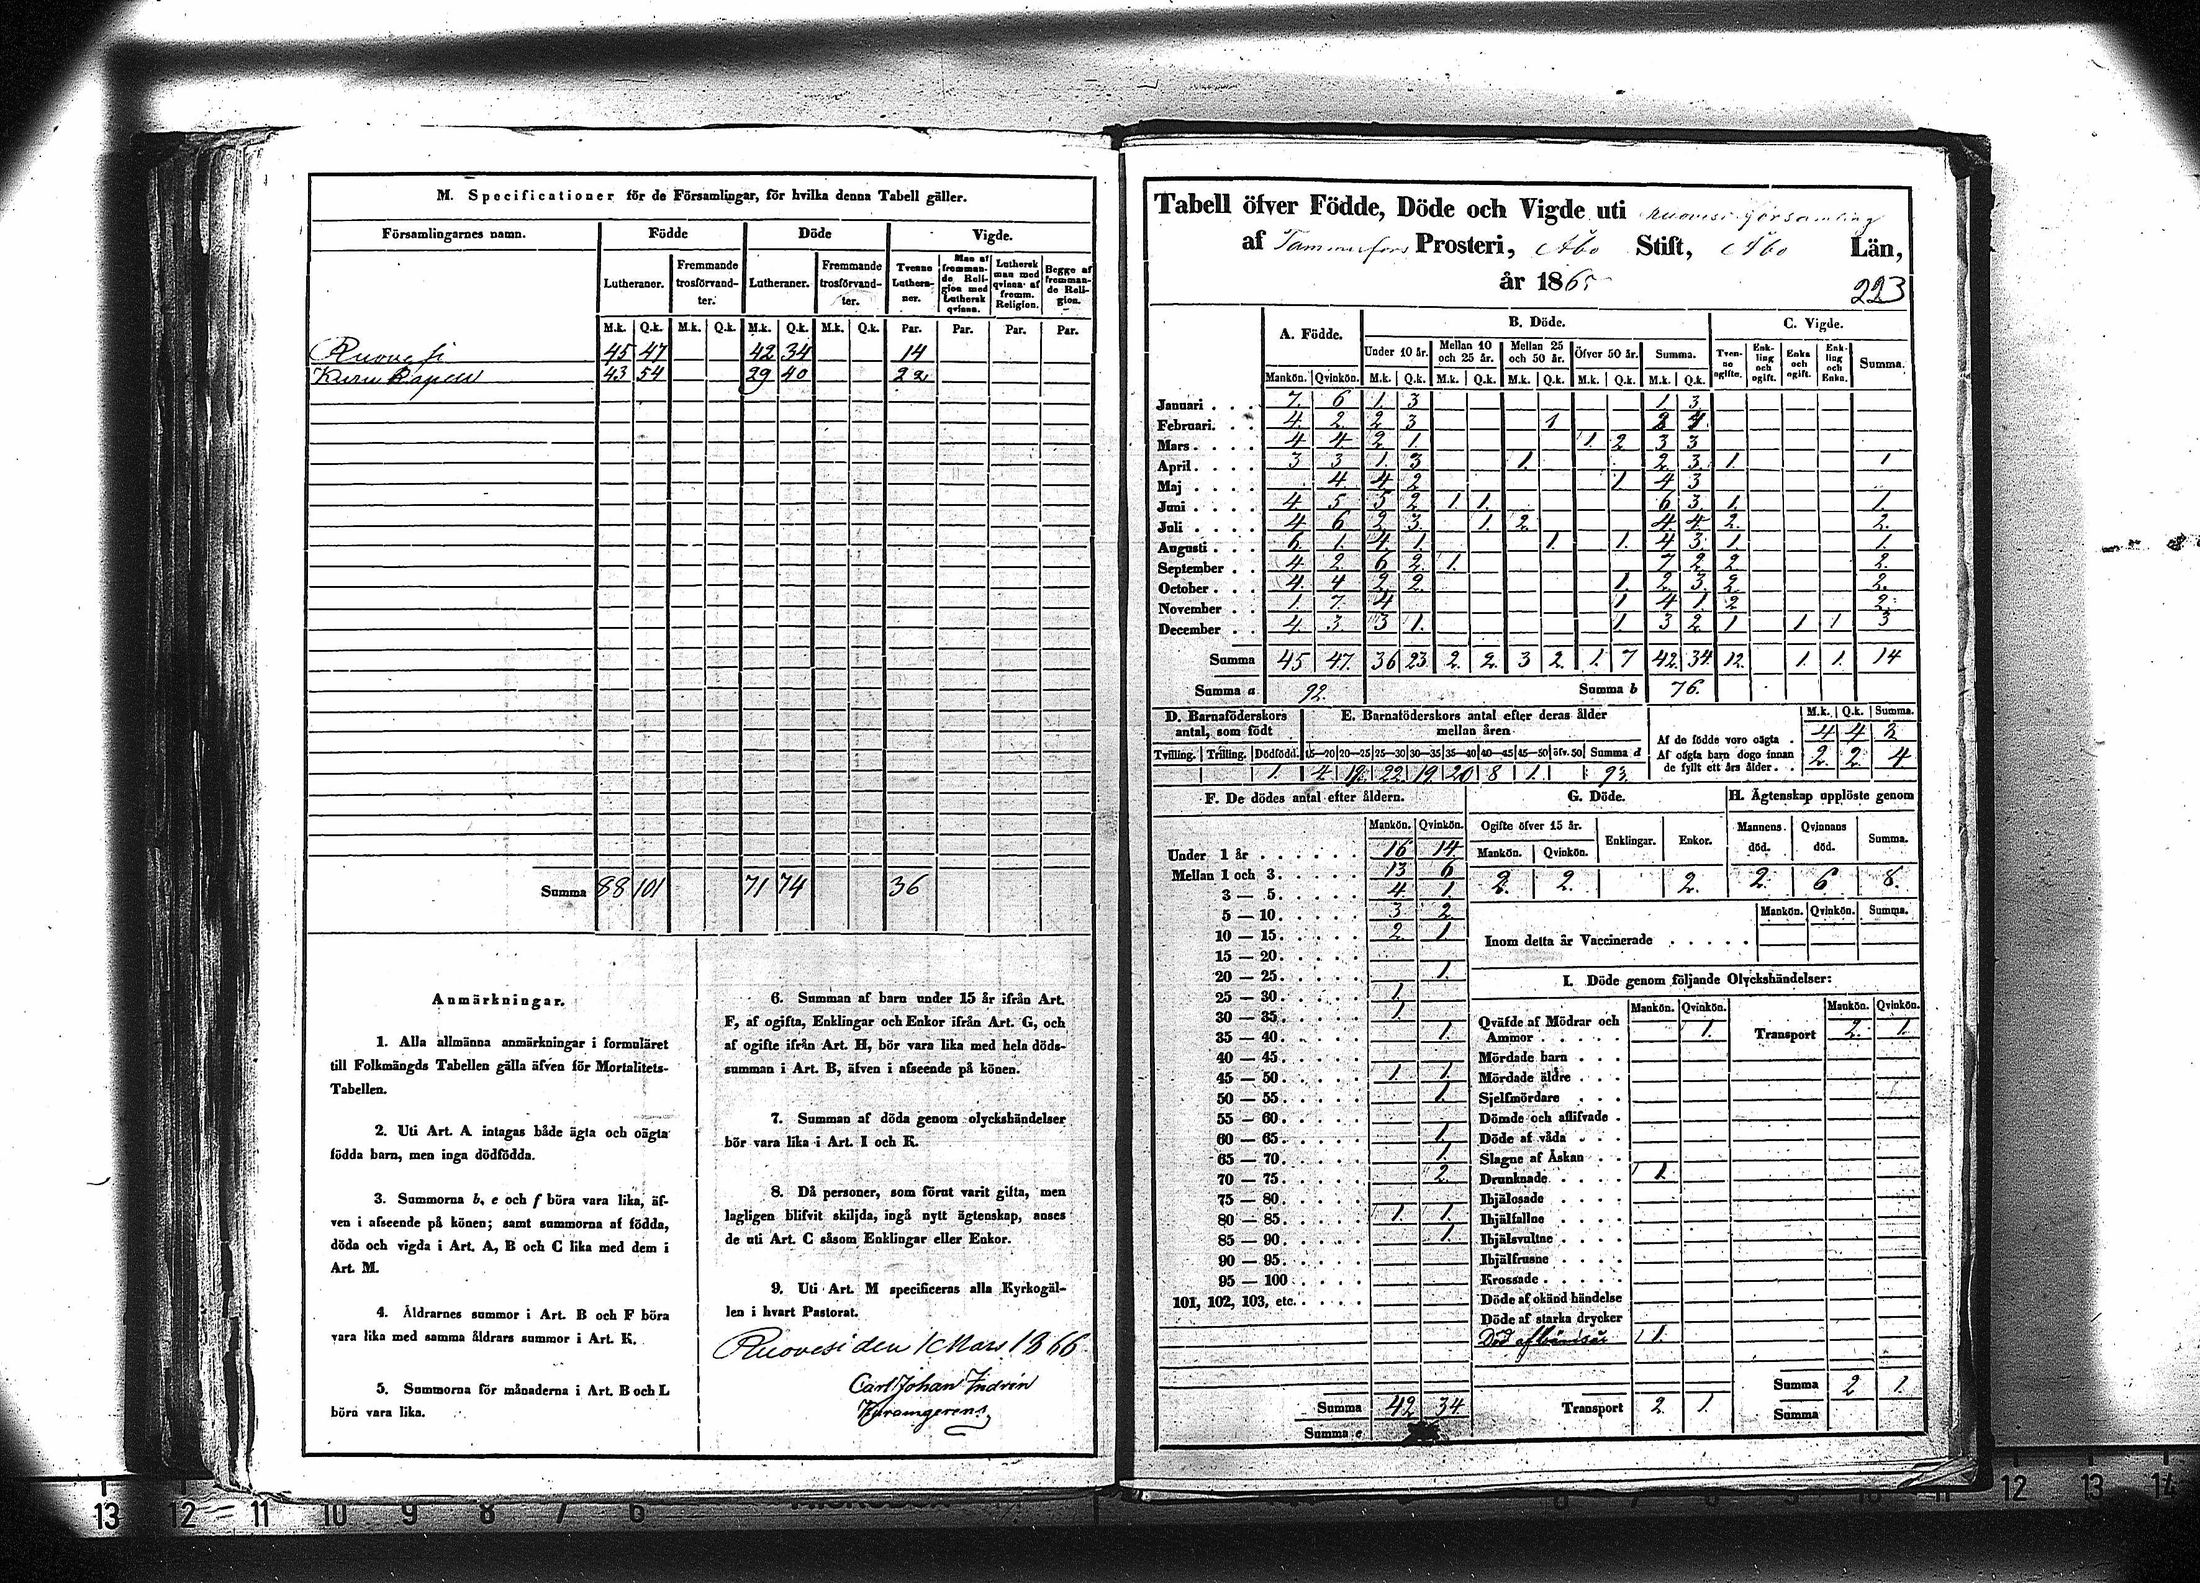 M. Specificationer för de Församlingar, för hvilka denna Tabell gäller.
Församlingarnes namn. Födde Döde Vigde.
Lutheraner. Fremmande trosförvandter. Lutheraner. Fremmande trosförvandter. Tvenne Lutheraner. Man af fremmande Religion med Luthersk qvinna. Luthersk man med qvinna af fremm. Religion. Begge af fremmande Religion.
M.k. Q.k. M.k. Q.k. M.k. Q.k. M.k. Q.k. Par. Par. Par. Par.
Ruovesi 45 47 42 34 14
Kuru 43 54 29 40 22
Summa 88 101 71 74 36
Anmärkningar.
1. Alla allmänna anmärkningar i formuläret
till Folkmängds Tabellen gälla äfven för Mortalitets-
Tabellen.
2. Uti Art. A intagas både ägta och oägta
födda barn, men inga dödfödda.
3. Summorna b, e och f böra vara lika, äf-
ven i afseende på könen; samt summorna af födda,
döda och vigda i Art. A, B och C lika med dem i
Art. M.
4. Åldrarnes summor i Art. B och F böra
vara lika med samma åldrars summor i Art. K.
5. Summorna för månaderna i Art. B och L
böra vara lika.
6. Summan af barn under 15 år ifrån Art.
F, af ogifta, Enklingar och Enkor ifrån Art. G, och
af ogifte ifrån Art. H, bör vara lika med hela döds-
summan i Art. B, äfven i afseende på könen.
7. Summan af döda genom olyckshändelser
bör vara lika i Art. I och K.
8. Då personer, som förut varit gifta, men
lagligen blifvit skiljda, ingå nytt ägtenskap, anses
de uti Art. C såsom Enklingar eller Enkor.
9. Uti Art. M specificeras alla Kyrkogäl-
len i hvart Pastorat.
Ruovesi den 1 Mars 1866
Carl Johan Indrén
Tabell öfver Födde, Döde och Vigde uti Ruovesi församling
af Tammerfors Prosteri, Åbo Stift, Åbo Län,
år 1865
223
A. Födde. B. Döde. C. Vigde.
Under 10 år. Mellan 10 och 25 år. Mellan 25 och 50 år. Öfver 50 år. Summa. Tvenne ogifta. Enkling och ogift. Enka och ogift. Enkling och Enka. Summa.
Mankön. Qvinkön. M.k. Q.k. M.k. Q.k. M.k. Q.k. M.k. Q.k. M.k. Q.k.
Januari 7. 6 1. 3 1. 3
Februari. 4. 2. 2 3 1 2 4
Mars 4 4 2 1. 1. 2 3 3
April 3 3 1. 3 1. 2. 3 1. 1
Maj 4 4 2 1. 4 3
Juni 4 5 5 2 1. 1. 6 3 1. 1.
Juli 4 6 2 3. 1. 2. 4 4 2. 2.
Augusti 6 1. 4 1. 1. 1. 4 3 1. 1.
September 4 2. 6 2. 1. 7 2 2. 2.
October 4. 4 2 2. 1. 2 3 2. 2.
November 1. 7. 4 1 4 1. 2 2.
December 4. 3. 3 1. 1. 3 2. 1 1 1 3
Summa 45 47. 36 23 2. 2. 3 2. 1. 7 42. 34. 12. 1. 1. 14
Summa a 92. Summa b 76.
D. Barnaföderskors antal, som födt E. Barnaföderskors antal efter deras ålder mellan åren M.k. Q.k. Summa.
Tvilling. Trilling. Dödfödd. 15—20 20—25 25—30 30—35 35—40 40—45 45—50 öfv. 50 Summa d
1. 4. 19. 22. 19 20 8 1. 93.
Af de födde voro oägta 4 4
Af oägta barn dogo innan de fyllt ett års ålder 2. 2. 4
F. De dödes antal efter åldern. G. Döde. H. Ägtenskap upplöste genom
Mankön. Qvinkön. Ogifte öfver 15 år. Enklingar. Enkor. Mannens död. Qvinnans död. Summa.
Mankön. Qvinkön.
2. 2. 2. 2. 6 8.
Under 1 år 16 14
Mellan 1 och 3 13 6
3 — 5 4. 1.
5 — 10 3 2
10 — 15 2 1
15 — 20
20 — 25 1.
25 — 30 1.
30 — 35 1.
35 — 40 1.
40 — 45
45 — 50 1 1.
50 — 55 1.
55 — 60
60 — 65 1.
65 — 70 1.
70 — 75 2.
75 — 80
80 — 85 1. 1.
85 — 90 1.
90 — 95
95 — 100
101, 102, 103, etc.
Summa 42 34.
Summa e
Mankön. Qvinkön. Summa.
Inom detta år Vaccinerade
I. Döde genom följande Olyckshändelser:
Mankön. Qvinkön. Mankön. Qvinkön.
Qväfde af Mödrar och Ammor 1. Transport 2. 1.
Mördade barn
Mördade äldre
Sjelfmördare
Dömde och aflifvade
Döde af våda
Slagne af Åskan
Drunknade 1.
Ihjälosade
Ihjälfallne
Ihjälsvultne
Ihjälfrusne
Krossade
Döde af okänd händelse
Döde af starka drycker
Död af 1.
Transport 2. 1.
Summa 2 1.
Summa
13 12 11 10 9 8 7 6
6 7 8 9 10 11 12 13 14